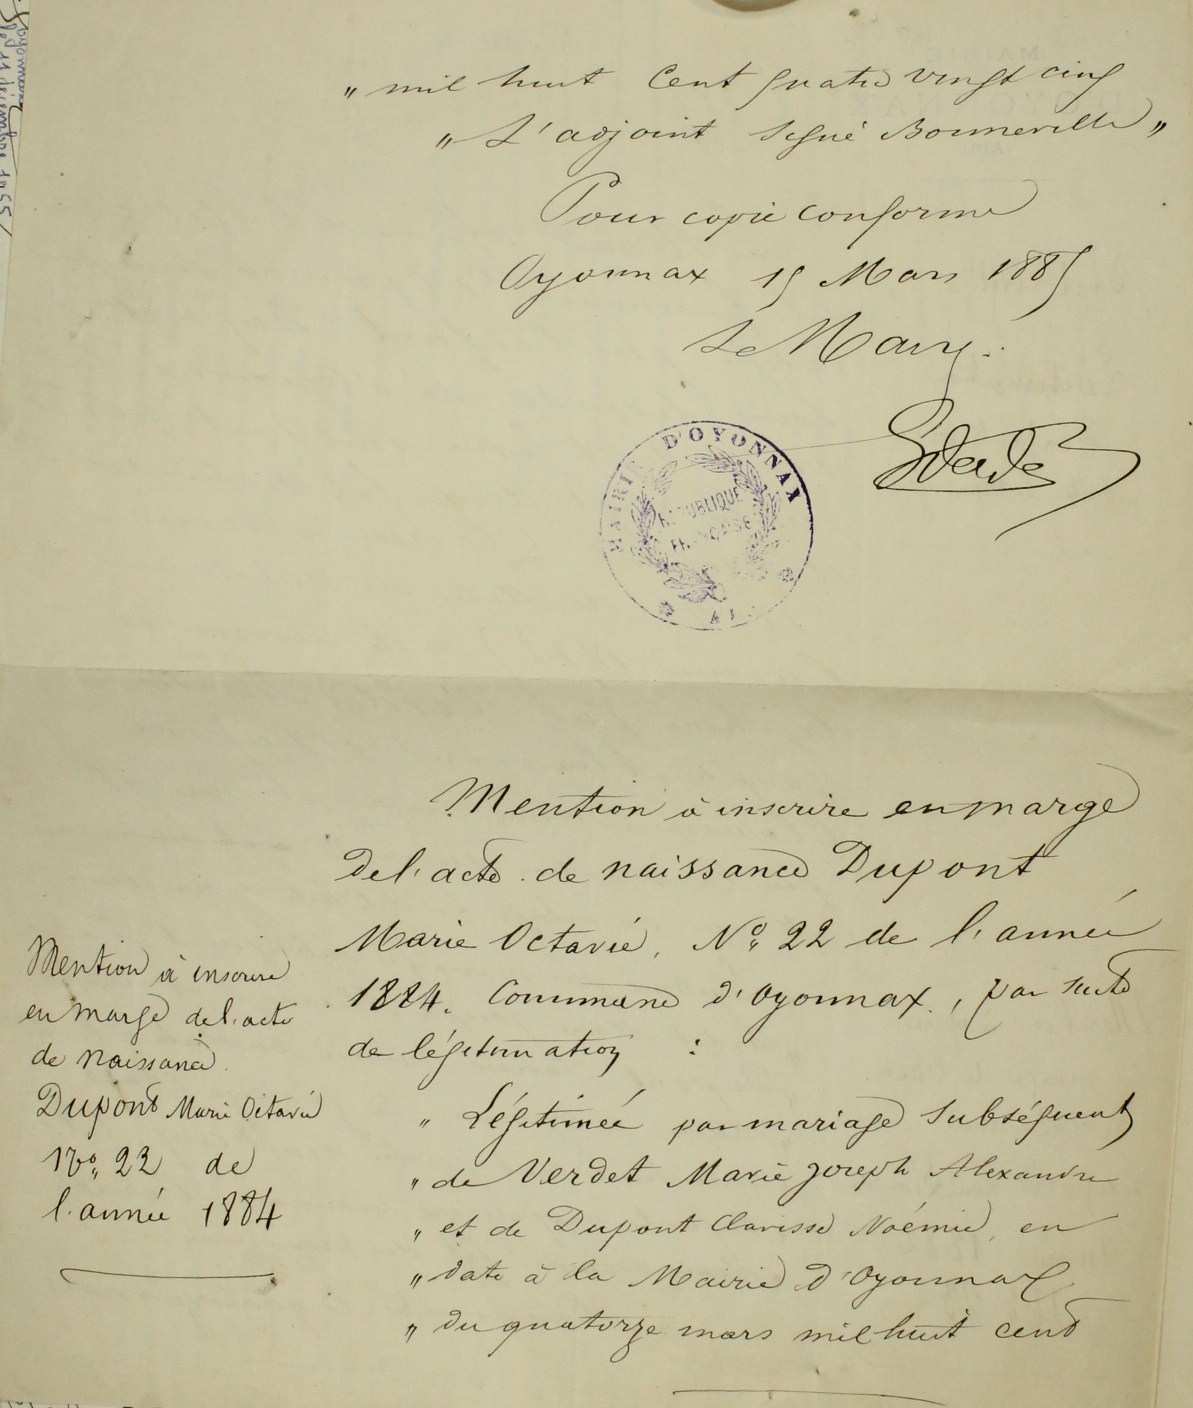 „ mil huit Cent quatre vingt cinq
„ L'adjoint Signé Bonneville „
Pour copie conforme
Oyonnax 15 Mars 1885
Le Maire.
MAIRIE D'OYONNAX
RÉPUBLIQUE
FRANÇAISE
Mention à inscrire en marge
de l'acte de naissance Dupont
Marie Octavie, No. 22 de l'année
1884. Commune d'Oyonnax, par suite
de légitimation :
„ Légitimée par mariage subséquent
„ de Verdet Marie Joseph Alexandre
„ et de Dupont Clarisse Noémie, en
„ date à la Mairie d'Oyonnax
„ du quatorze mars mil huit cent
Mention à inscrire
en marge de l'acte
de Naissance
Dupont Marie Octavie
No. 22 de
l'année 1884